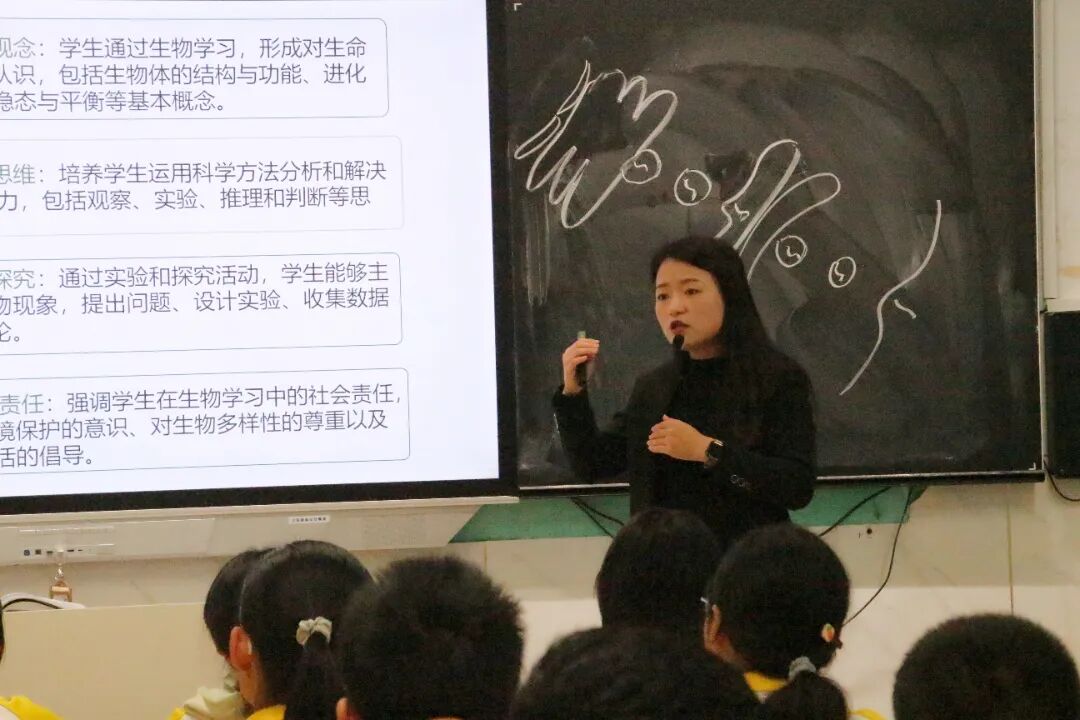 观念：学生通过生物学习，形成对生命
认识，包括生物体的结构与功能、进化
稳态与平衡等基本概念。
思维：培养学生运用科学方法分析和解决
力，包括观察、实验、推理和判断等思
探究：通过实验和探究活动，学生能够主
物现象，提出问题、设计实验、收集数据
论。
责任：强调学生在生物学习中的社会责任，
境保护的意识、对生物多样性的尊重以及
活的倡导。